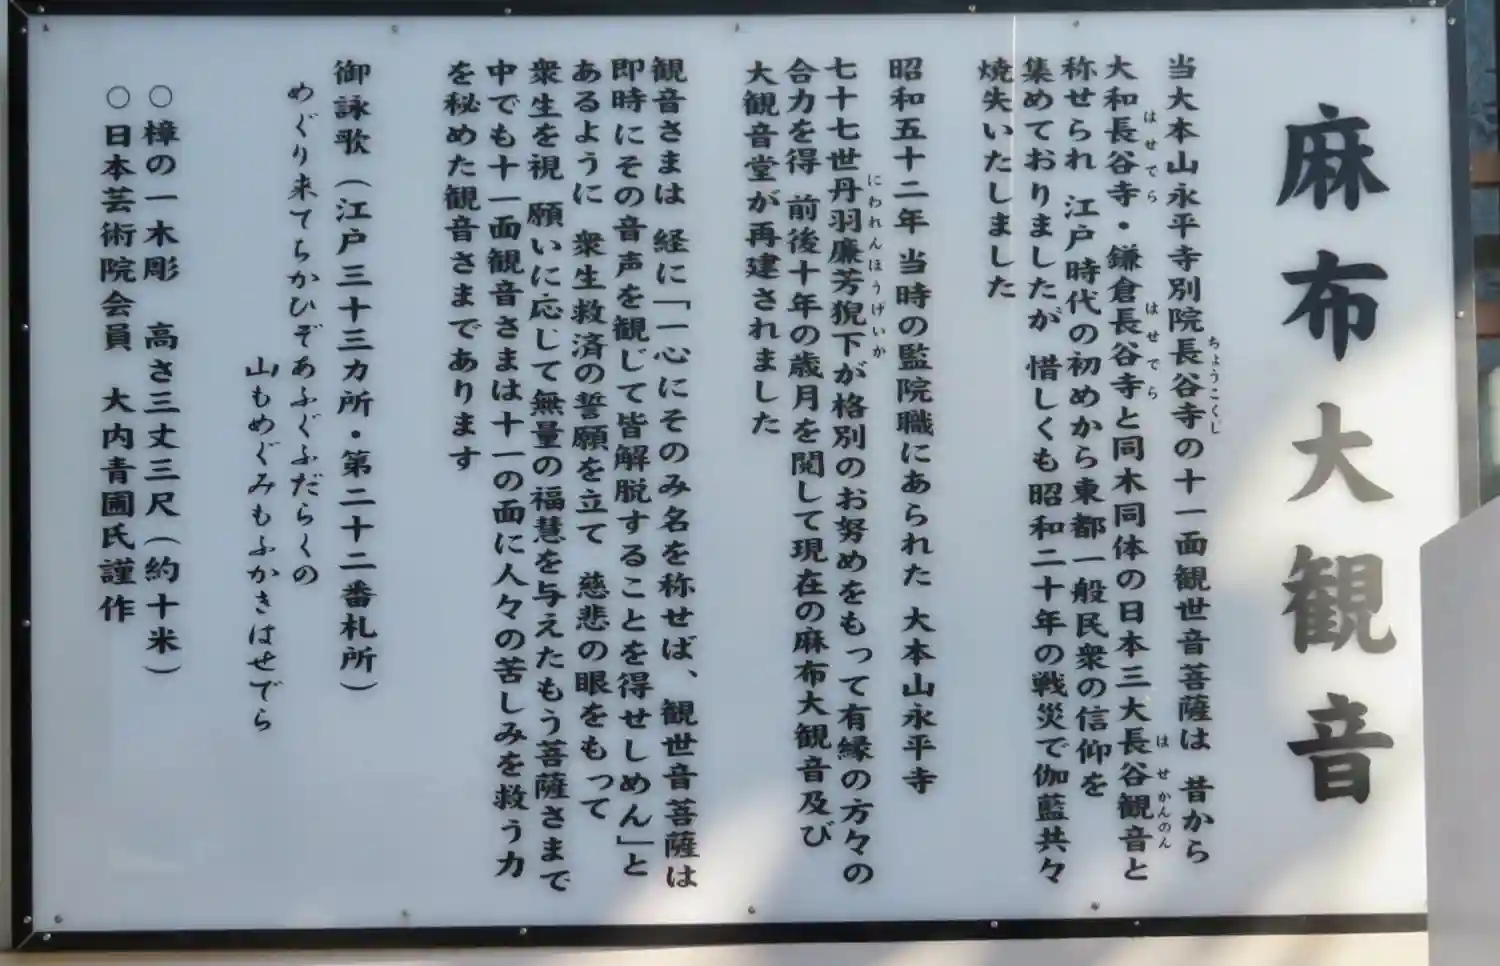 麻布大観音
当大本山永平寺別院長谷寺の十一面観世音菩薩は 昔から
ちょうこくじ
大和長谷寺・鎌倉長谷寺と同木同体の日本三大長谷観音と
はせでら はせでら はせかんのん
称せられ 江戸時代の初めから東都一般民衆の信仰を
集めておりましたが 惜しくも昭和二十年の戦災で伽藍共々
焼失いたしました
昭和五十二年 当時の監院職にあられた 大本山永平寺
七十七世丹羽廉芳猊下が格別のお努めをもって有縁の方々の
にわれんぽうげいか
合力を得 前後十年の歳月を閲して現在の麻布大観音及び
大観音堂が再建されました
観音さまは 経に「一心にそのみ名を称せば、観世音菩薩は
即時にその音声を観じて皆解脱することを得せしめん」と
あるように 衆生救済の誓願を立て 慈悲の眼をもって
衆生を視 願いに応じて無量の福慧を与えたもう菩薩さまで
中でも十一面観音さまは十一の面に人々の苦しみを救う力
を秘めた観音さまであります
御詠歌(江戸三十三カ所・第二十二番札所)
めぐり来てちかひぞあふぐふだらくの
山もめぐみもふかきはせでら
○樟の一木彫 高さ三丈三尺(約十米)
○日本芸術院会員 大内青圃氏謹作